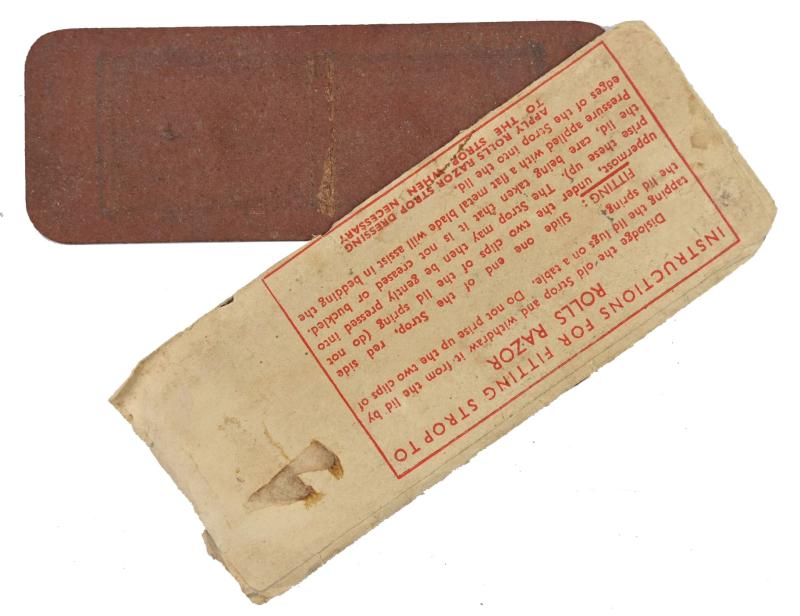 INSTRUCTIONS FOR FITTING STROP TO
ROLLS RAZOR
Dislodge the old Strop and withdraw it from the lid by
tapping the lid lugs on a table. Do not prise up the two clips of
the lid spring.
FITTING: Slide one end of the Strop, red side
uppermost, under the two clips of the lid spring (do not
prise these up). The Strop may then be gently pressed into
the lid, care being taken that it is not creased or buckled.
Pressure applied with a flat metal blade will assist in bedding the
edges of the Strop into the lid.
APPLY ROLLS RAZOR STROP DRESSING
TO THE STROP WHEN NECESSARY